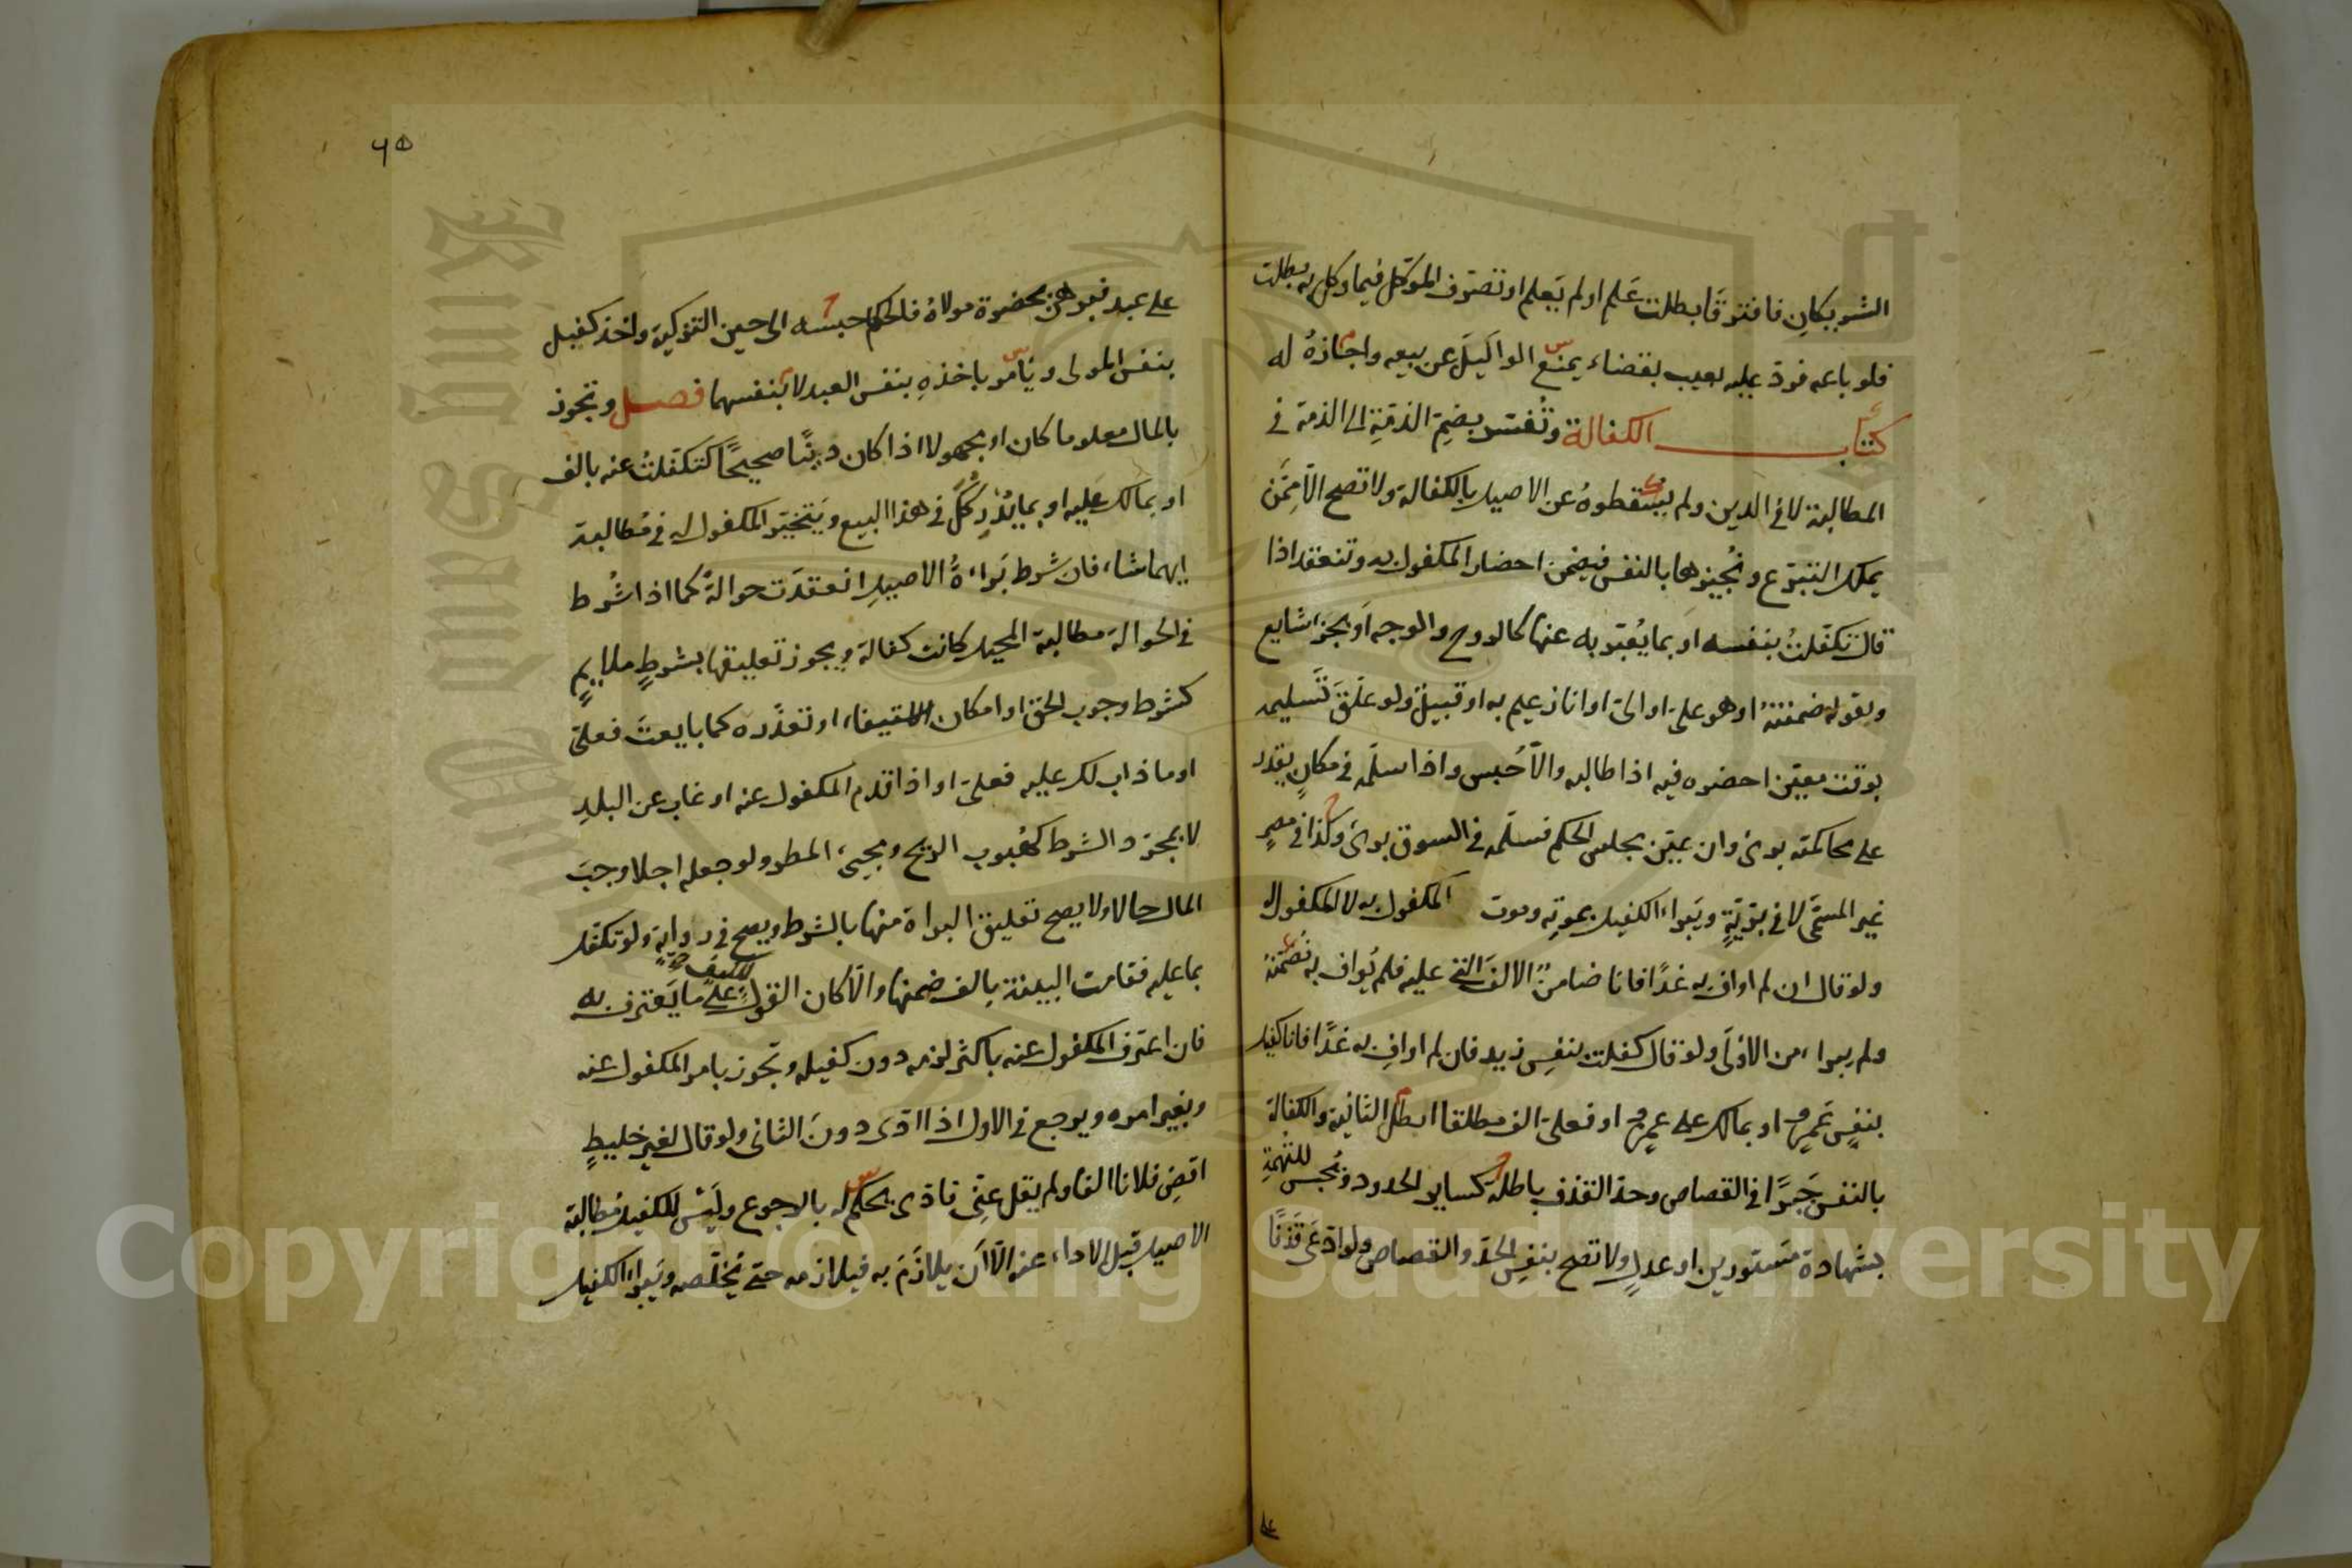 الشريكان فافترقا بطلت عَلم او لم يَعلم او تصرف الموكل فيما وكل به بطلت
فلو باعه فردّ عليه بعيب بقضاء يمنع الوالكيلَ عن بيعه واجازهُ له
كتاب الكفالة وتُفسر بضم الذمة الى الذمة في
المطالبة لا في الدين ولم يسقطوهُ عن الاصيل بالكفالة ولا تصح الّا ممّن
يملك التبرّع ونُجيزها بالنفس فيضمن احضار المكفول به وتنعقد اذا
قال تكفّلتُ بنفسه او بما يُعبّر به عنها كالروح والوجه او بجزء شايع
وبقوله ضمنتهُ او هو علىّ او الىّ او انا زعيم به او قبيلٌ ولو علّقَ تسليمه
بوقت معيّن احضره فيه اذا طالبه والّا حُبس واذا سلّمه في مكانٍ يقدر
على محاكمته برئ وان عيّن مجلس الحكم فسلّمه في السوق برئ وكذا في مصرٍ
غير المسمّى لا في بريّةٍ ويَبراء الكفيل بموتِه وموت المكفول به لا المكفول له
ولو قال ان لم اوافِ به غدًا فانا ضامنٌ الالفَ التي عليه فلم يُوافِ به ضمنه
ولم يبراء من الاولى ولو قال كفلت بنفسِ زيد فان لم اوافِ به غدًا فانا كفيل
بنفسِ عَمرٍو او بمالك على عمرٍو او فعلىّ الف مطلقا ابطل الثانية والكفالة
بالنفس جَبرًا في القصاص وحدّ القذف باطلة كساير الحدود ونُحبس للتهمةِ
بشهادة مستورين او عدلٍ ولا تصح بنفسِ الحدّ والقصاص ولو ادّعى قذفًا
على
٦٥
على عبد فبرهن بحضرة مولاهُ فالحكم حبسه الى حين التزكية واخذ كفيل
بنفس المولى ويأمر باخذهِ بنفس العبد لا بنفسهما فصل وتجوز
بالمال معلوما كان او مجهولا اذا كان دينًا صحيحًا كتكفّلتُ عنه بالف
او بمالك عليه او بما يُدْرِكُكَ في هذا البيع ويَتخيّر المكفول له في مُطالبة
ايهما شاء فان شرط بَراءةُ الاصيل انعقدَت حوالةً كما اذا شُرط
في الحوالة مطالبة المحيل كانت كفالة ويجوز تعليقها بشرطٍ ملايمٍ
كشرط وجوب الحق او امكان الاستيفاء او تعذّره كما بايعتَ فعلىّ
او ما ذاب لك عليه فعلىّ او اذا قدم المكفول عنه او غاب عن البلدِ
لا بمجرّد الشرط كهُبوب الريح ومجيئ المطر ولو جعله اجلا وجبَ
المال حالا ولا يصح تعليق البراة منها بالشرط ويصح في روايةٍ ولو تكفّل
بما عليه فقامت البينة بالف ضمنها والّا كان القول للكفيل على ما يَعترف به
فان اعترف المكفول عنه باكثر لزمه دون كفيله وتجوز بامر المكفول عنه
وبغير امره ويرجع في الاول اذا ادّى دونَ الثاني ولو قال لغير خليطٍ
اقضِ فلانا الفا ولم يقل عنّى فادّى يحكم له بالرجوع وليس للكفيل مُطالبة
الاصيل قبل الاداء عنه الّا ان يلازَمَ به فيلازمه حتى يُخلّصه ويَبراء الكفيل
Copyright © King Saud University
King Saud University